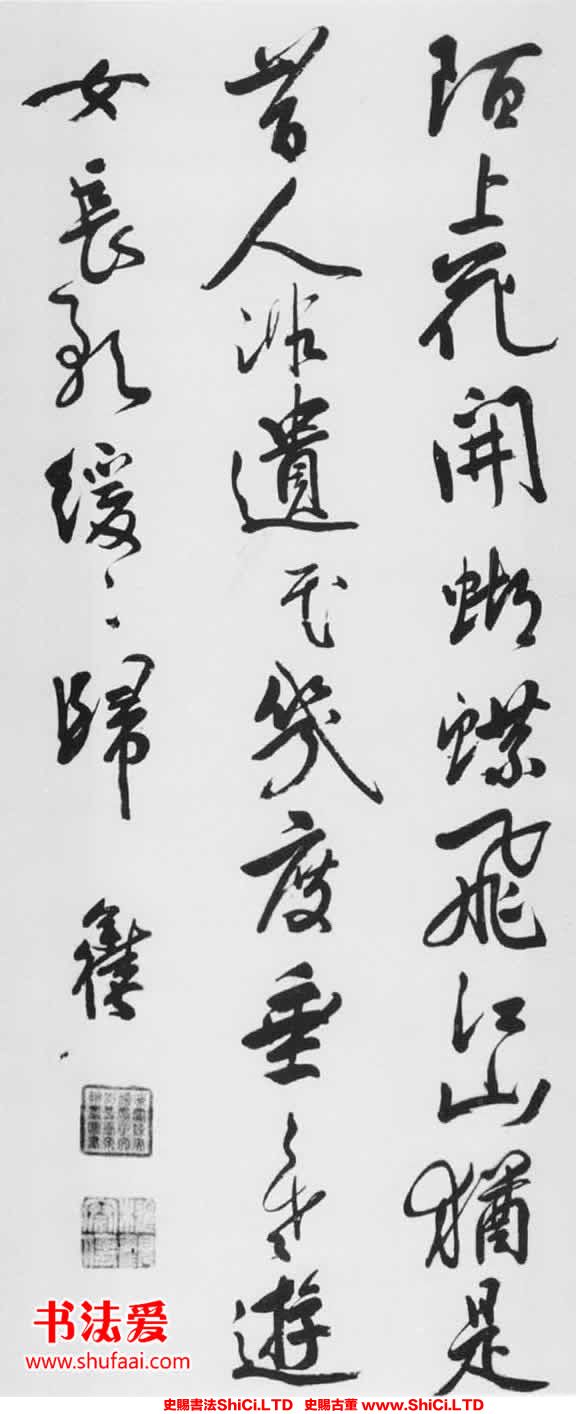 陌上花開蝴蝶飛江山猶是
昔人非遺民幾度垂〻老遊
女長歌緩〻歸
书法爱
www.shufaai.com
史賜書法ShiCi.LTD 史賜古董 www.ShiCi.LTD